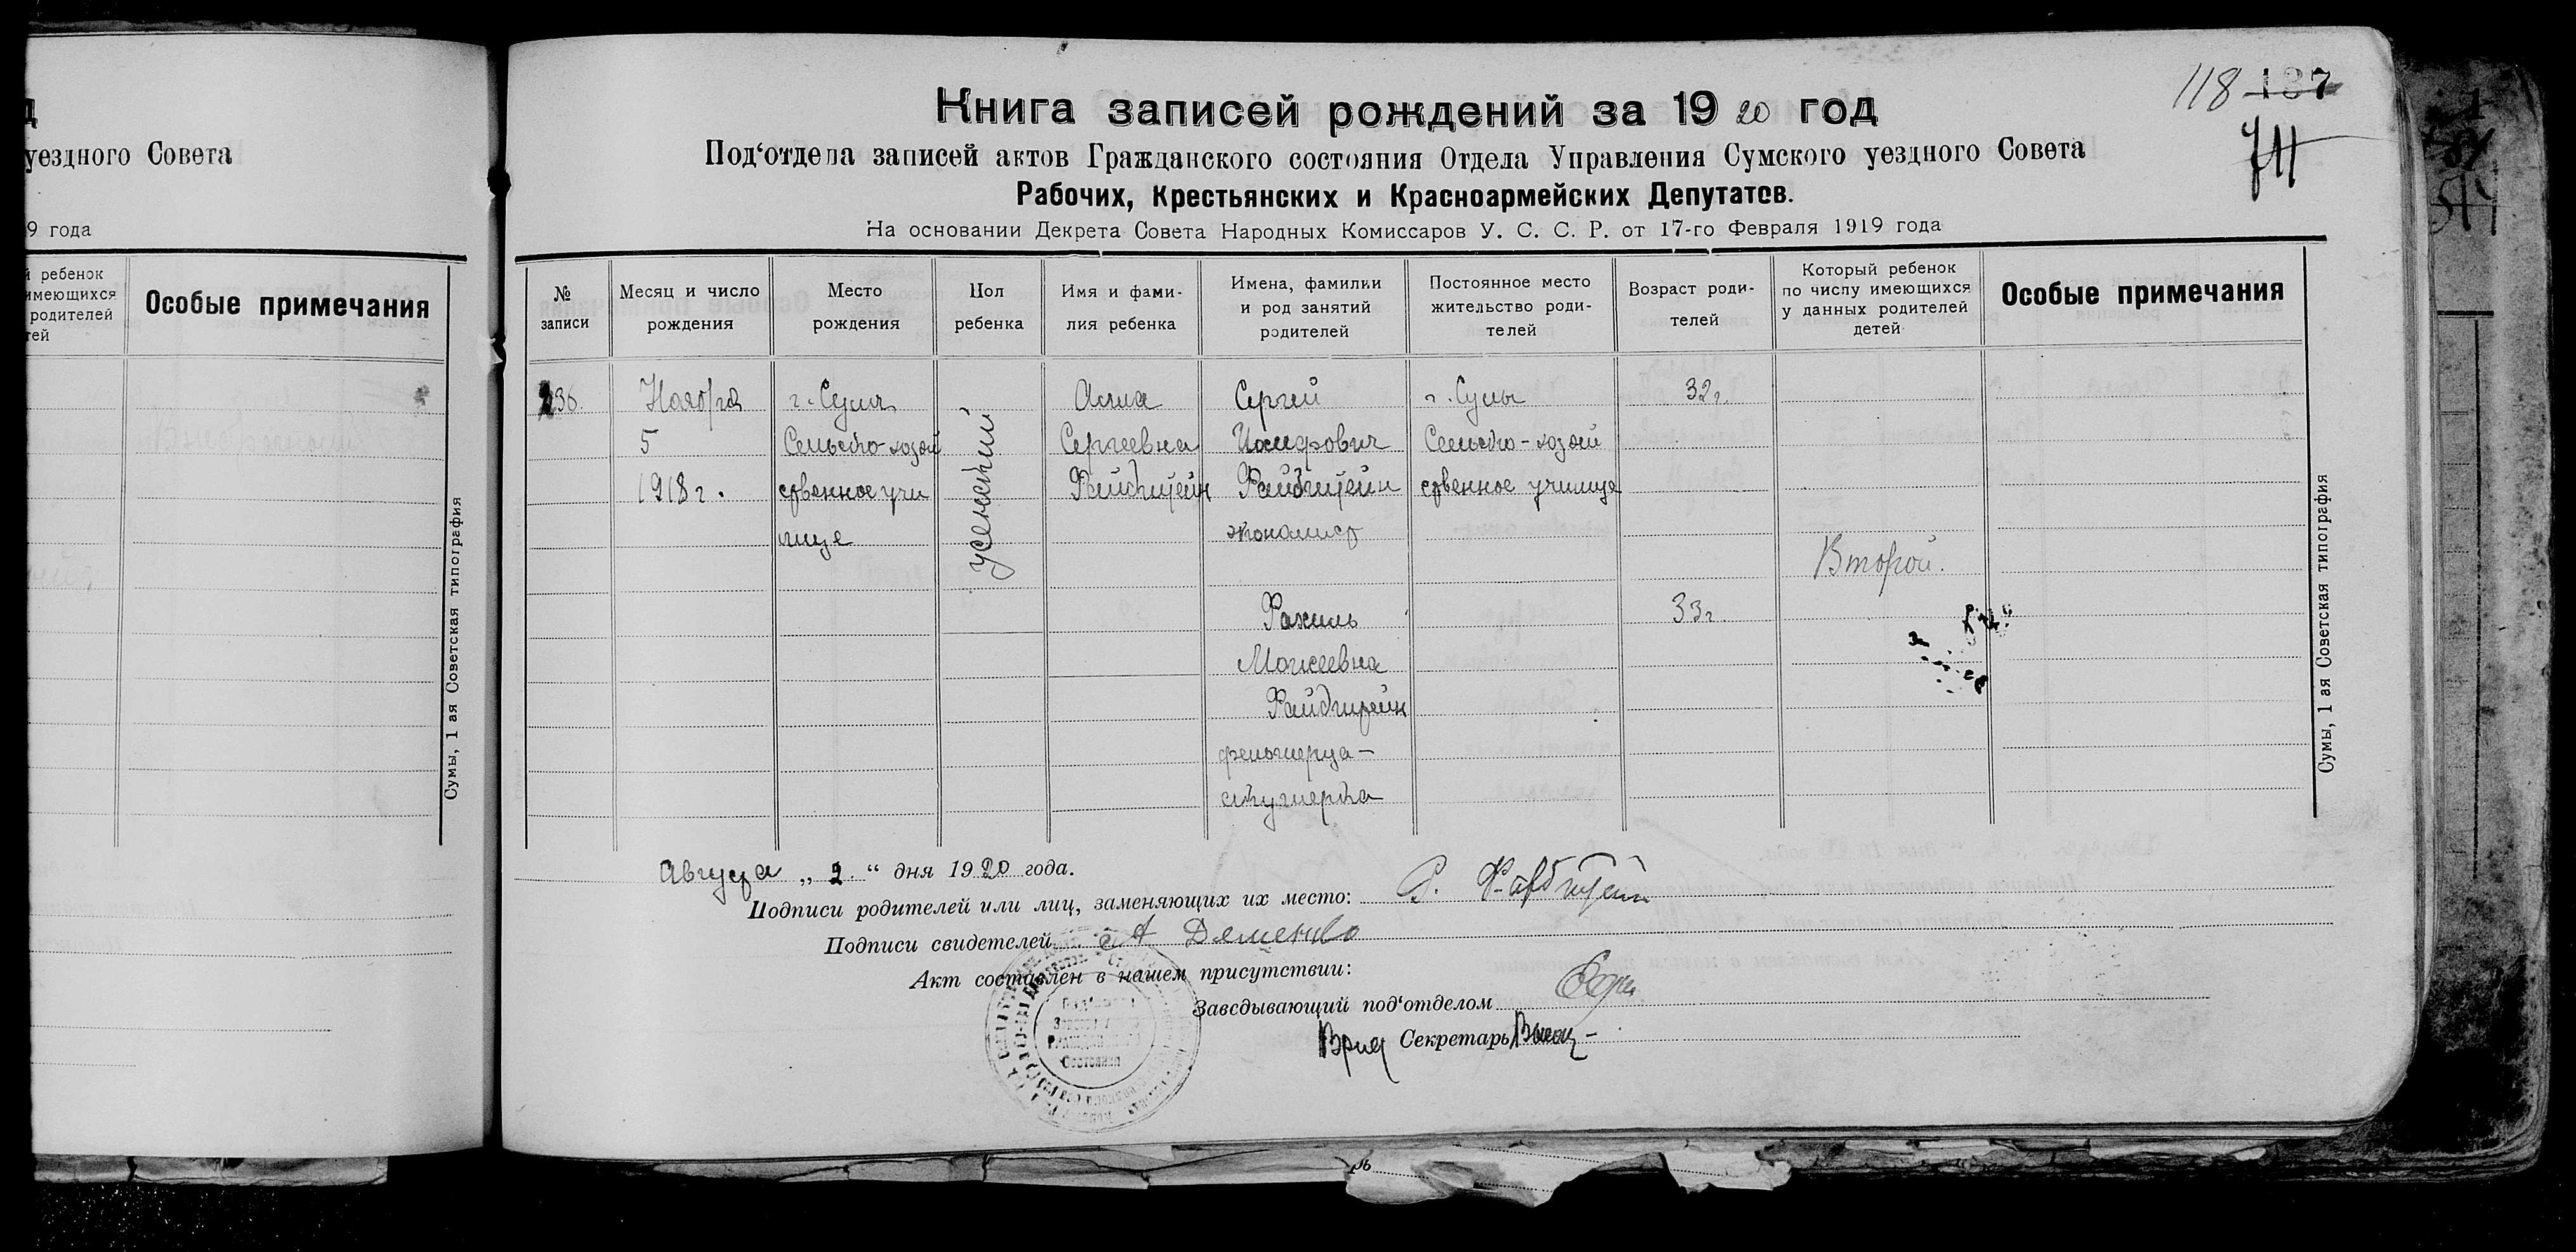 уездного Совета
9 года
й ребенок
имеющихся
родителей
тей
Особые примечания
Сумы, 1 ая Советская типография
118 137
Книга записей рождений за 19 20 год
Под‘отдела записей актов Гражданского состояния Отдела Управления Сумского уездного Совета
Рабочих, Крестьянских и Красноармейских Депутатов.
На основании Декрета Совета Народных Комиссаров У. С. С. Р. от 17-го Февраля 1919 года
№ записи
Месяц и число рождения
Место рождения
Пол ребенка
Имя и фами-
лия ребенка
Имена, фамилии
и род занятий
родителей
Постоянное место
жительство роди-
телей
Возраст роди-
телей
Который ребенок
по числу имеющихся
у данных родителей
детей
Особые примечания
236.
Ноября
5
1918 г.
г. Сумы
Сельско-хозяй
ственное учи
лище
женский
Сергеевна
Файдштейн
Сергей
Иосифович
Файдштейн
экономист
Рахиль
Моисеевна
Файдштейн
фельшерица-
акушерка
г. Сумы
Сельско-хозяй
ственное училище
32 г.
33 г.
Второй.
Сумы, 1 ая Советская типография
Августа „ 2 “ дня 1920 года.
Подписи родителей или лиц, заменяющих их место: Р.
Подписи свидетелей
Акт составлен в нашем присутствии:
Заведывающий под‘отделом
Врид Секретарь